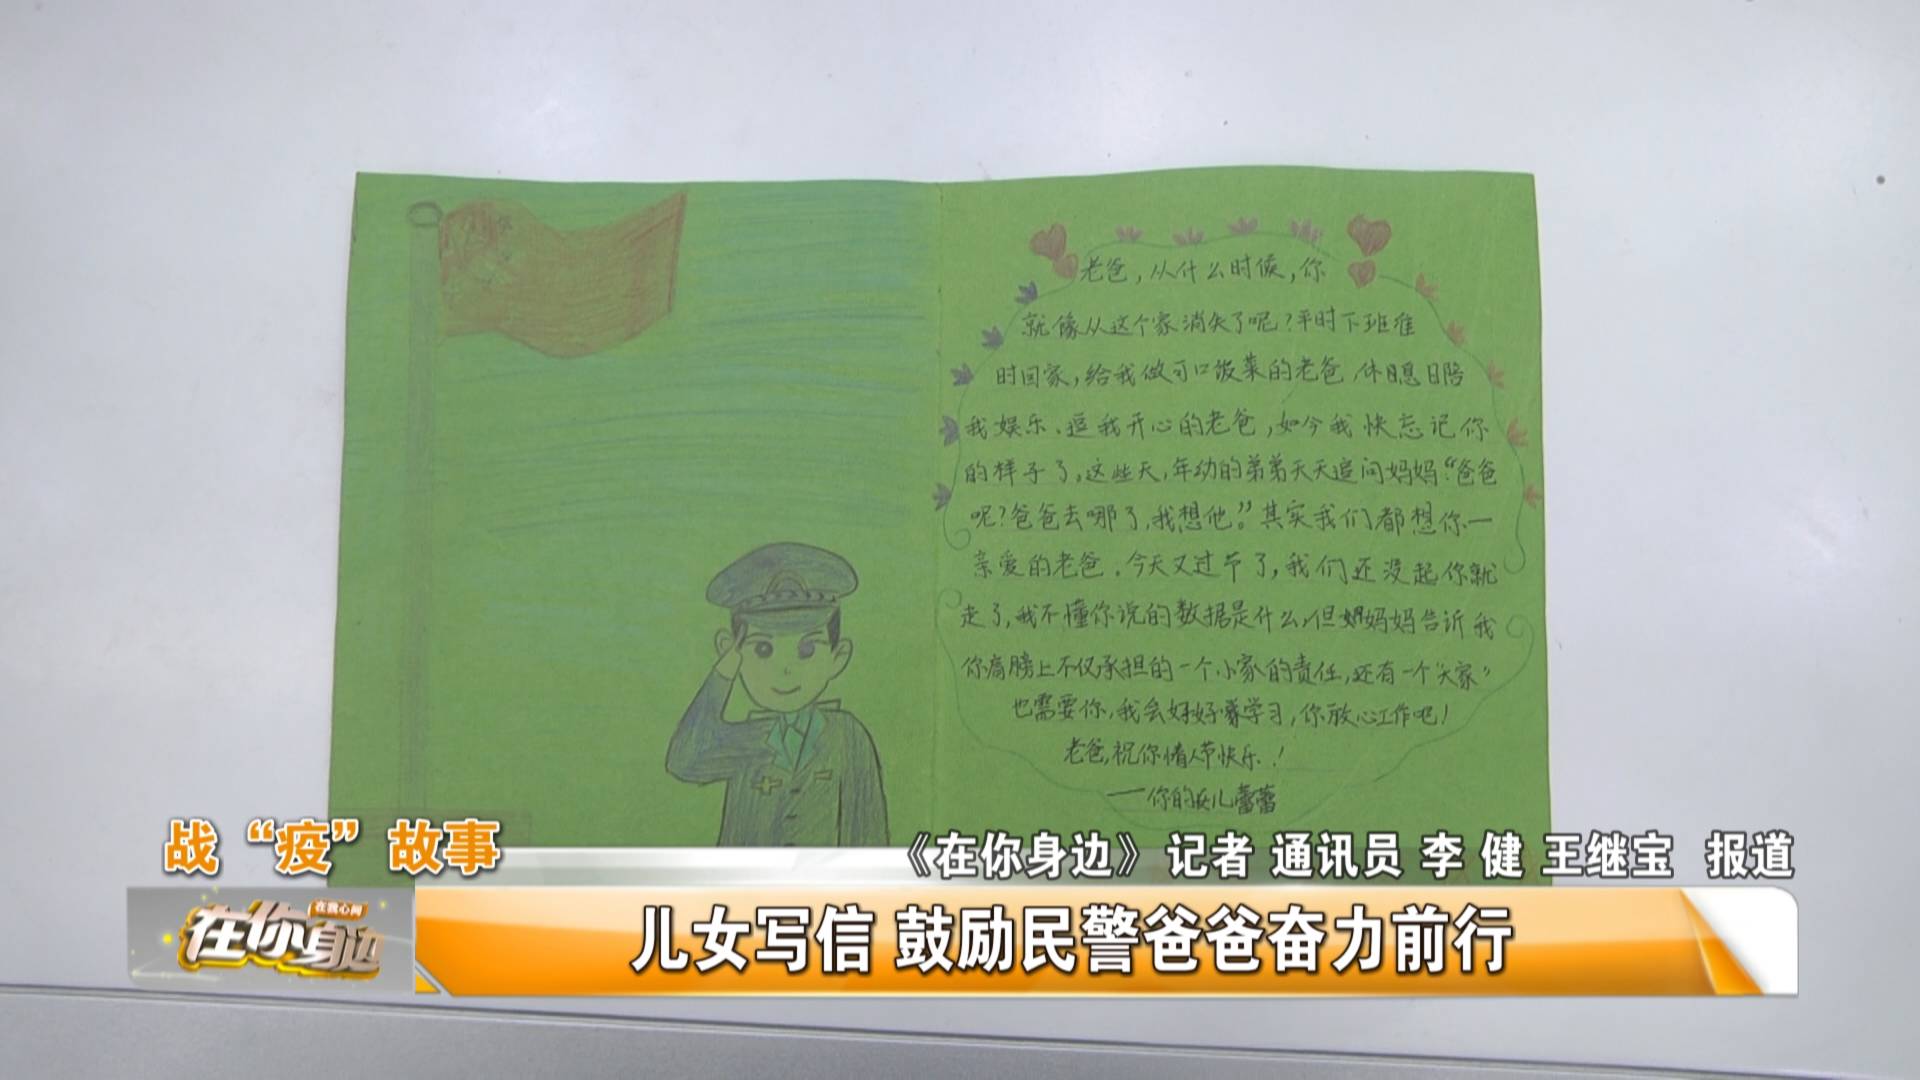 老爸，从什么时候，你
就像从这个家消失了呢？平时下班准
时回家，给我做可口饭菜的老爸，休息日陪
我娱乐、逗我开心的老爸，如今我快忘记你
的样子了，这些天，年幼的弟弟天天追问妈妈“爸爸
呢？爸爸去哪了，我想他。”其实我们都想你—
亲爱的老爸。今天又过节了，我们还没起你就
走了，我不懂你说的数据是什么，但妈妈告诉我
你肩膀上不仅承担的一个小家的责任，还有一个“大家”
也需要你，我会好好学习，你放心工作吧！
老爸，祝你情人节快乐！
——你的女儿蕾蕾
战“疫”故事
《在你身边》记者 通讯员 李 健 王继宝 报道
在我心间
在你身边
儿女写信 鼓励民警爸爸奋力前行